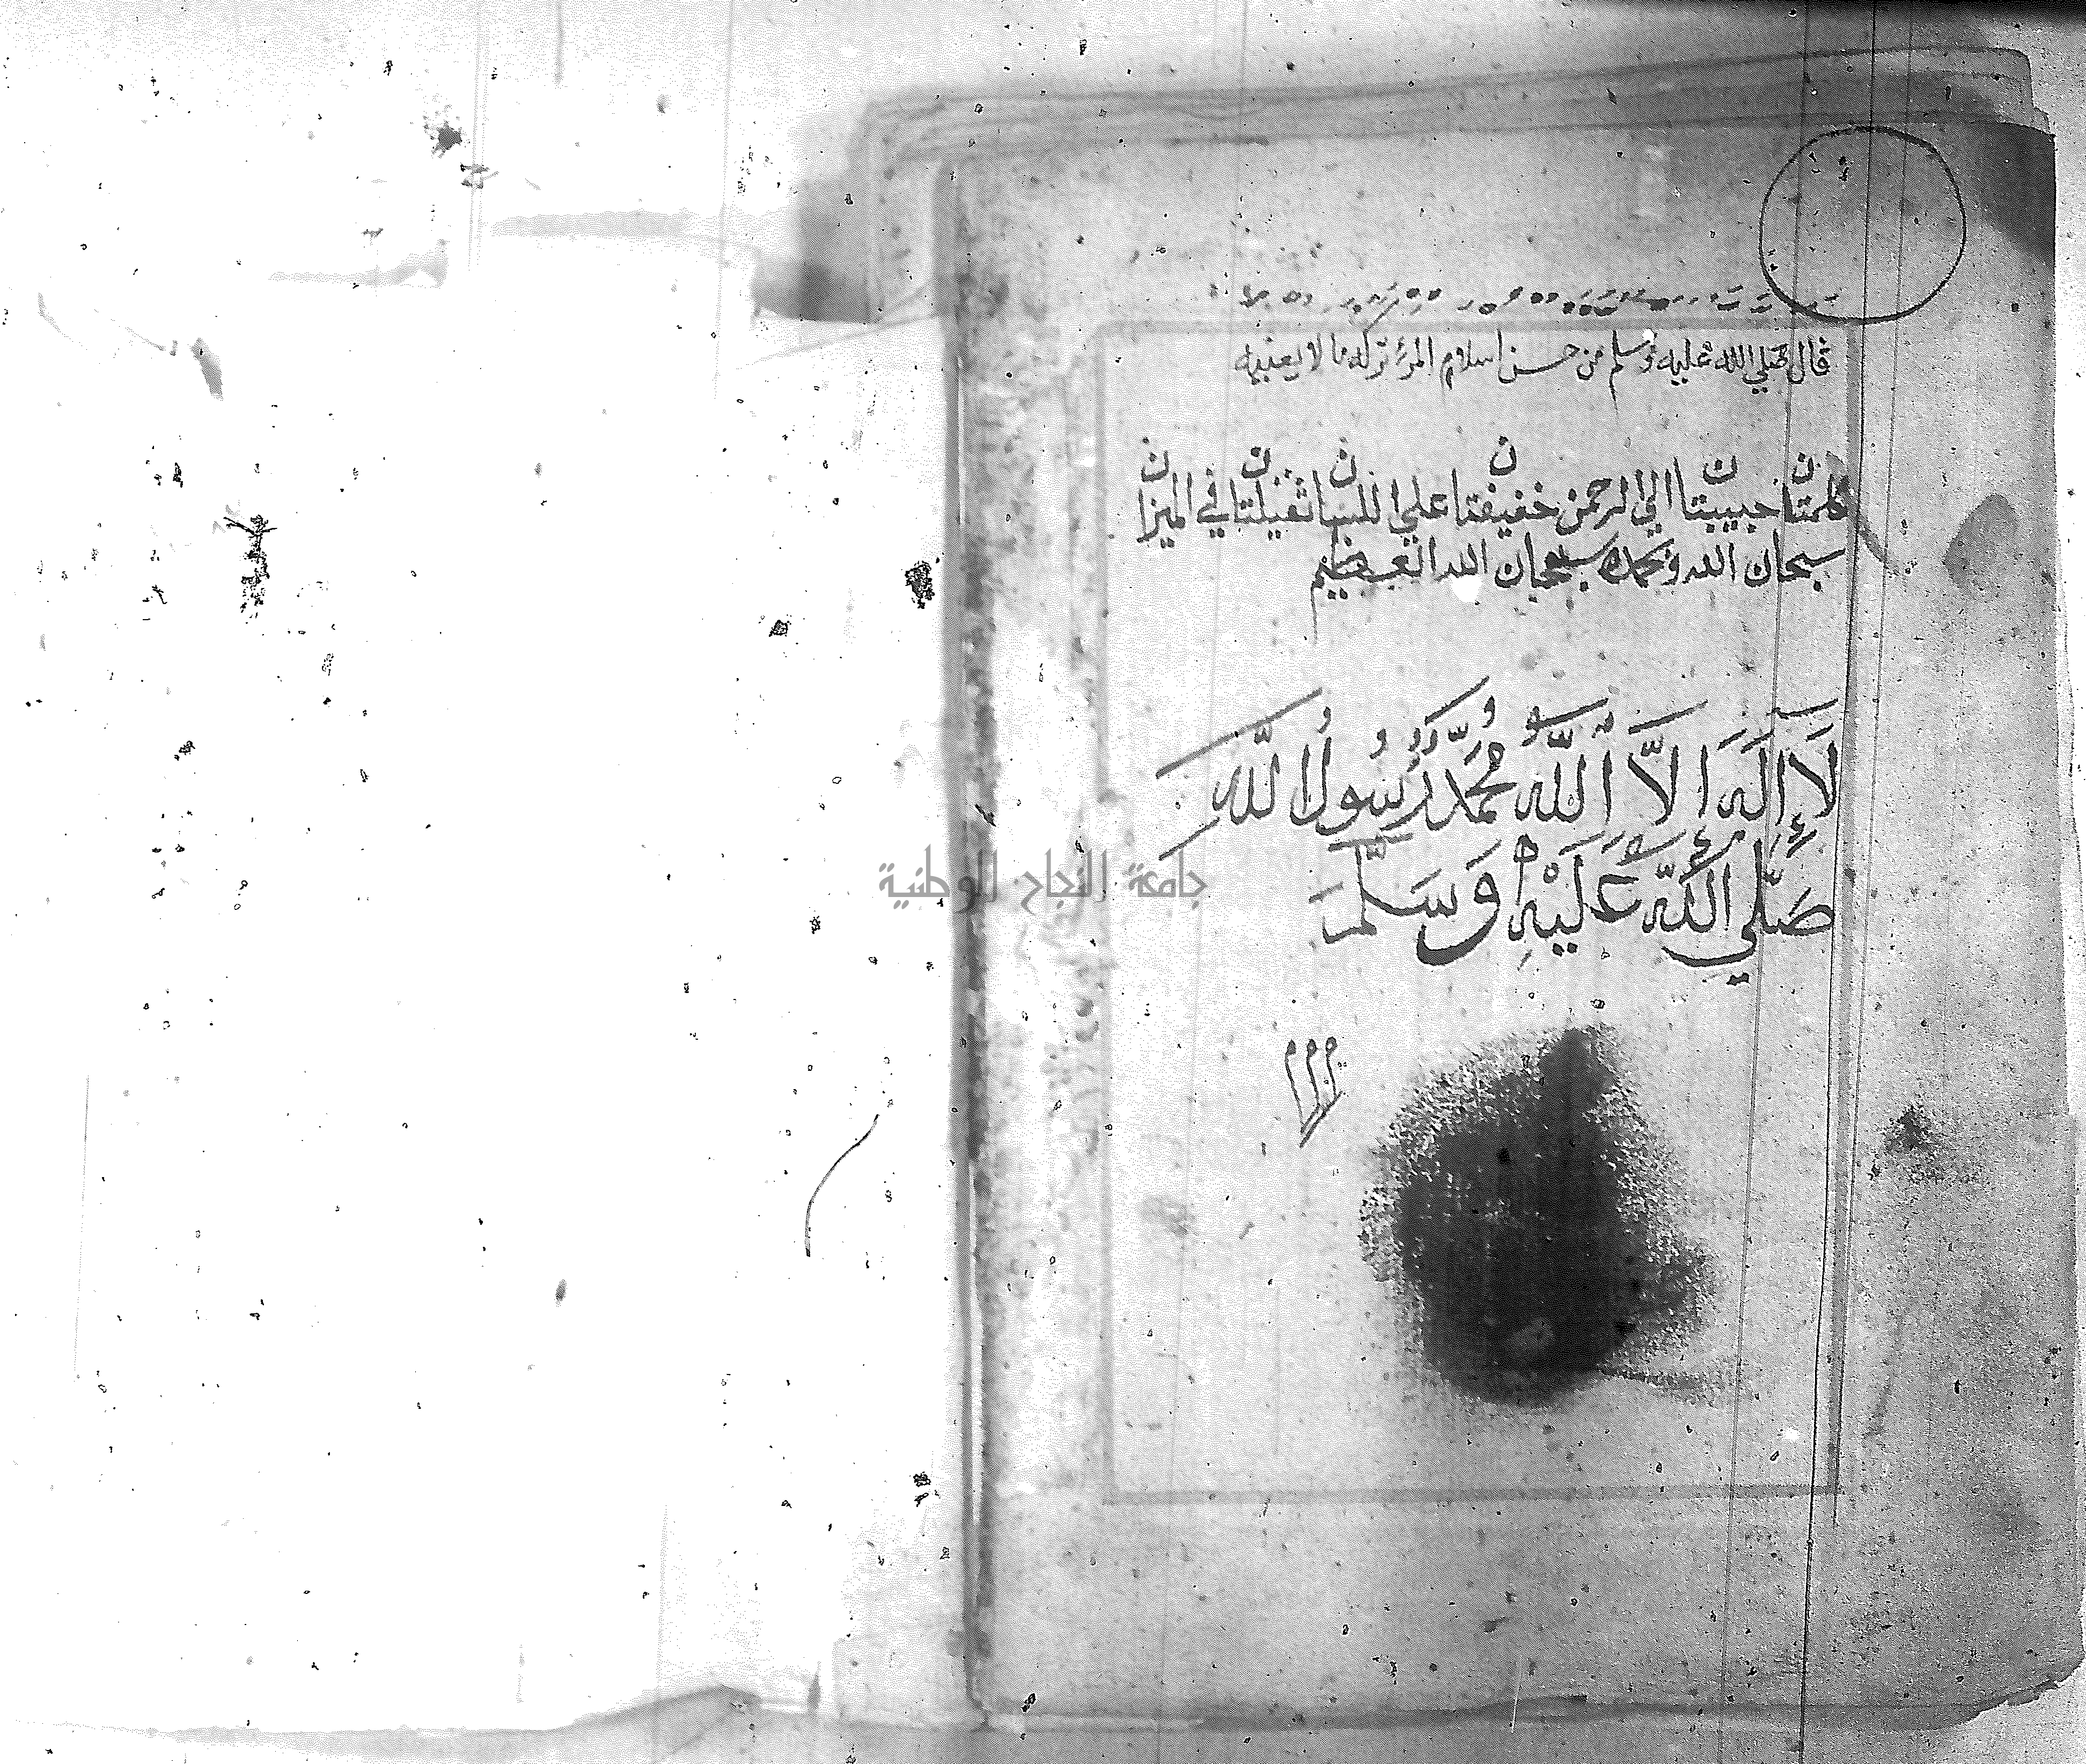 قال صلي الله عليه وسلم من حسن اسلام المرء تركه ما لا يعنيه
كلمتان حبيبتان الي الرحمن خفيفتان علي اللسان ثقيلتان في الميزان
سبحان الله وبحمده سبحان الله العظيم
لَا إِلَهَ اِلَّا اللَّهُ مُحَمَّدٌ رَسُولُ اللَّه
صَلَّي اللَّه عَلَيْهِ وَسَلَّمَ
جامعة النجاح الوطنية